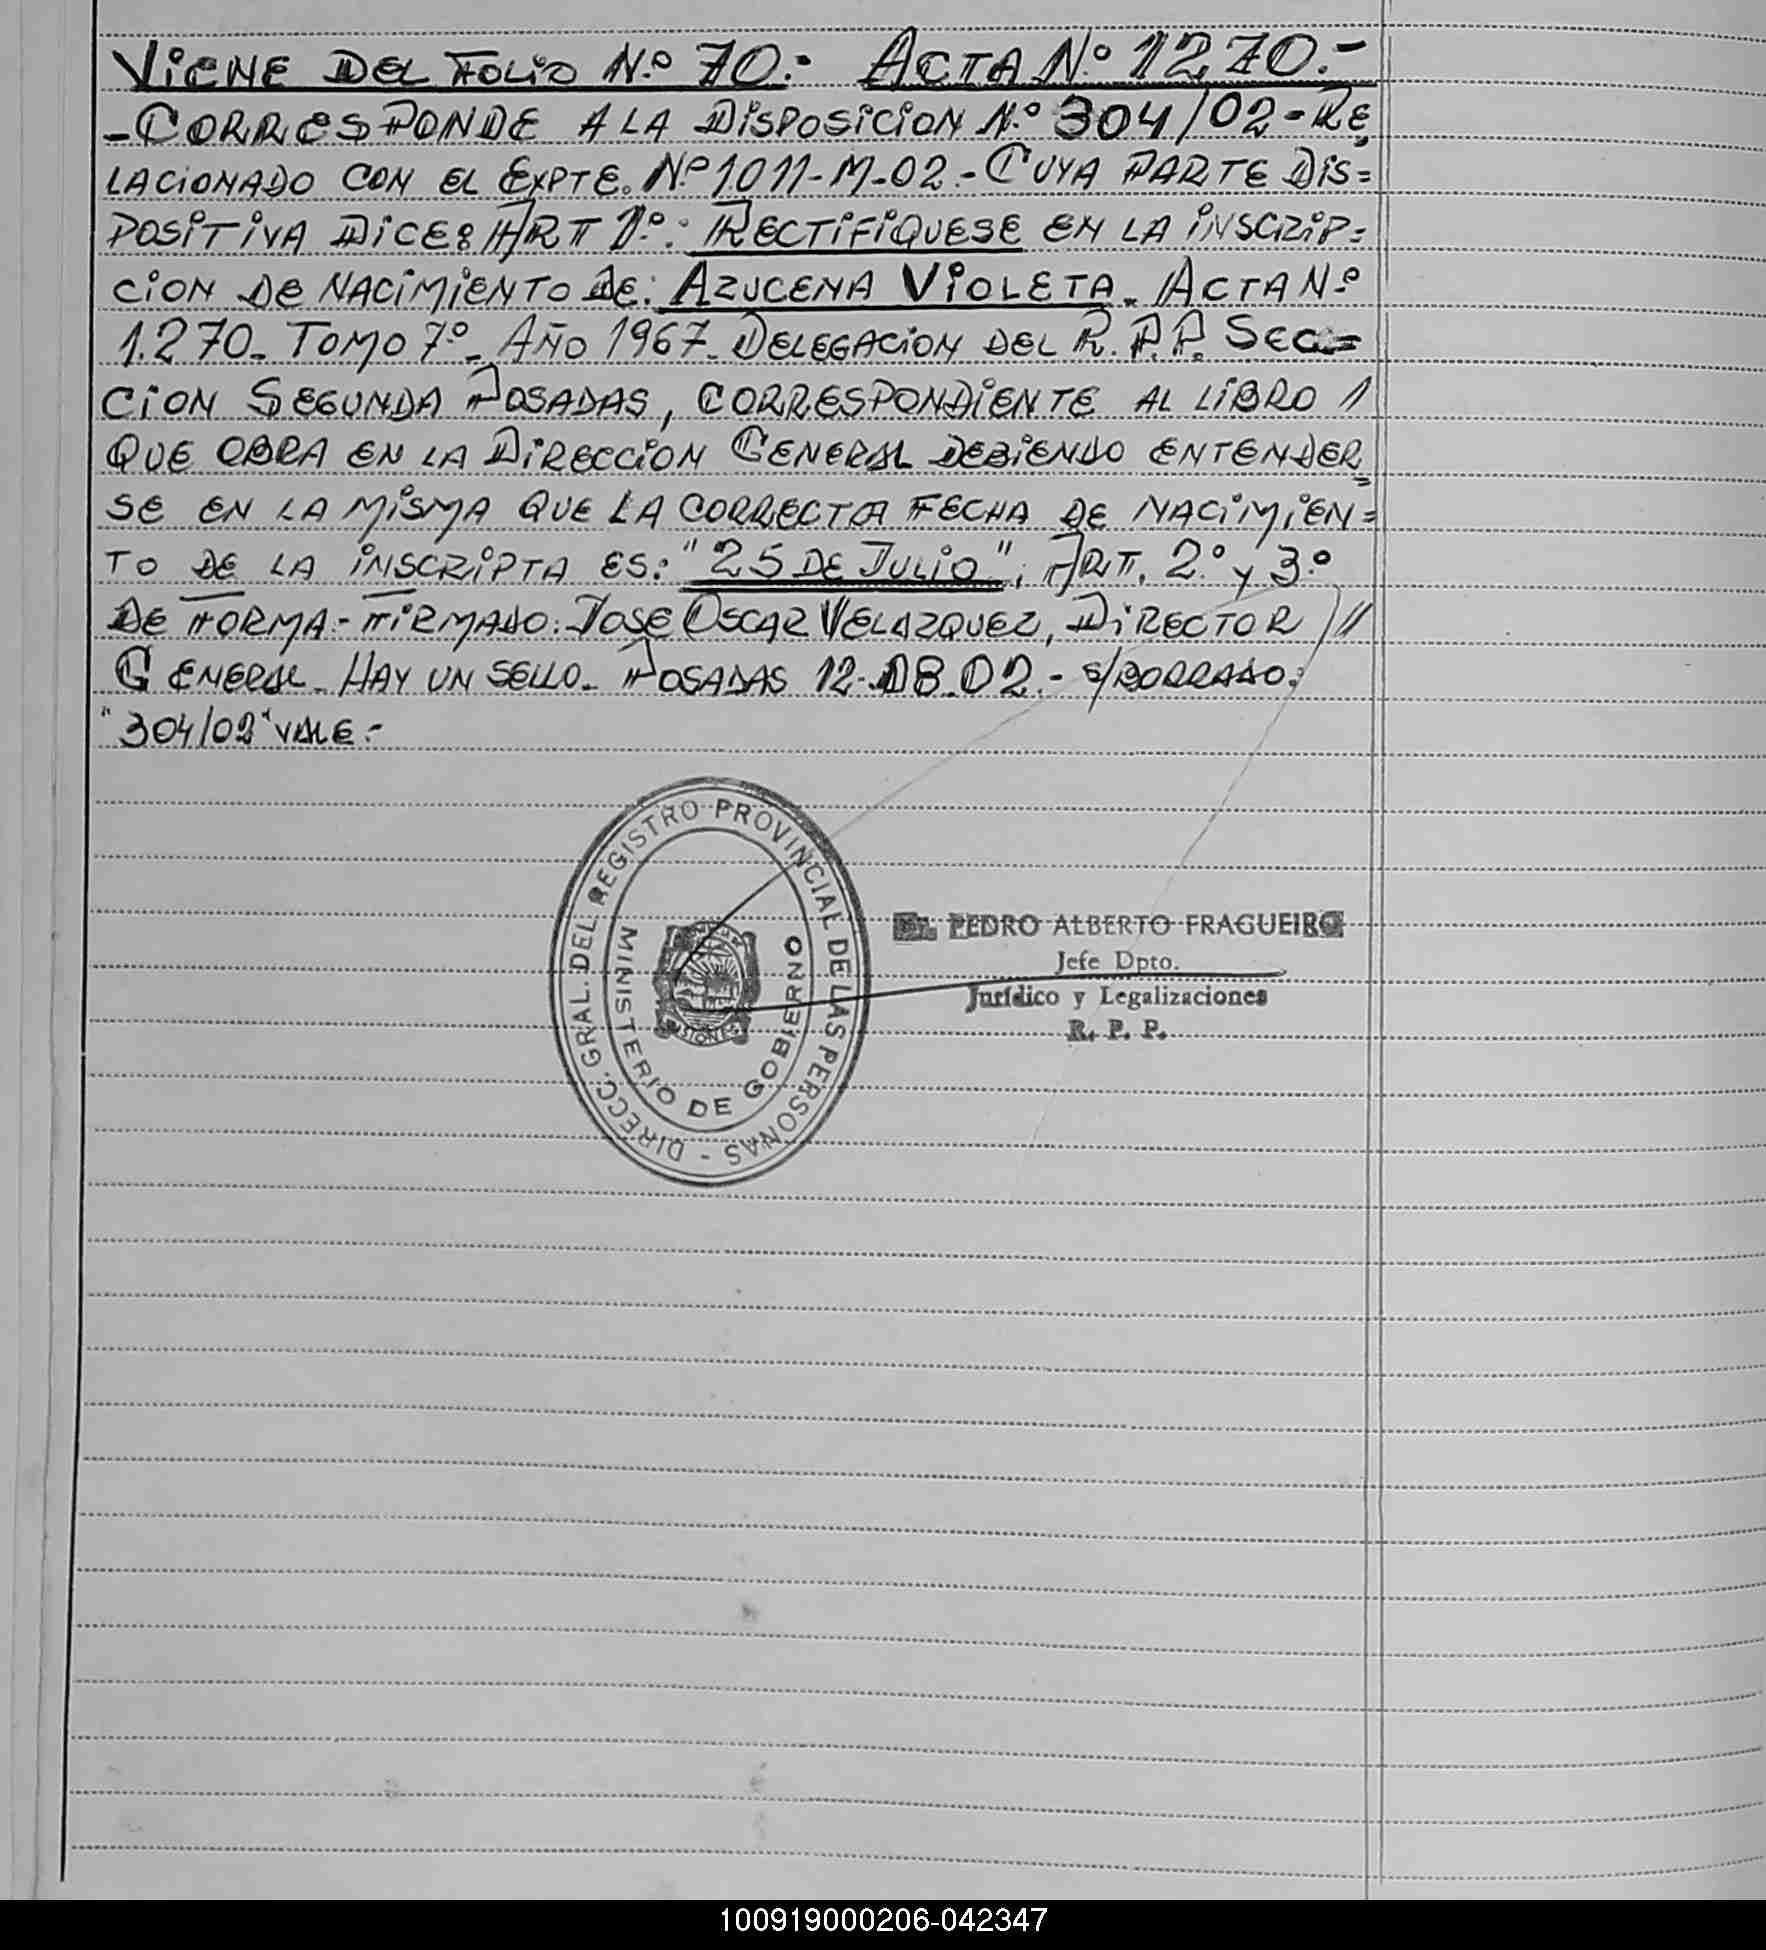 VIENE DEL FOLIO N.º 70.- ACTA N.º 1270.-
-CORRESPONDE A LA DISPOSICION N.º 304/02-RE,
LACIONADO CON EL EXPTE. N.º 1.011-M-02.- CUYA PARTE DIS=
POSITIVA DICE: ART 1.º: RECTIFIQUESE EN LA INSCRIP=
CION DE NACIMIENTO DE: AZUCENA VIOLETA. ACTA N.º
1.270. TOMO 7º. AÑO 1967. DELEGACION DEL R.P.P. SEC=
CION SEGUNDA POSADAS, CORRESPONDIENTE AL LIBRO 1
QUE OBRA EN LA DIRECCION GENERAL DEBIENDO ENTENDER=
SE EN LA MISMA QUE LA CORRECTA FECHA DE NACIMIEN=
TO DE LA INSCRIPTA ES: "25 DE JULIO"; ART. 2.º y 3.º
DE FORMA.- FIRMADO: JOSE OSCAR VELAZQUEZ, DIRECTOR //
GENERAL. HAY UN SELLO. POSADAS 12-08.02.- S/BORRADO:
"304/02" VALE.-
DIRECC. GRAL. DEL REGISTRO PROVINCIAL DE LAS PERSONAS -
MINISTERIO DE GOBIERNO
MISIONES
Dr. PEDRO ALBERTO FRAGUEIRO
Jefe Dpto.
Jurídico y Legalizaciones
R. P. P.
100919000206-042347